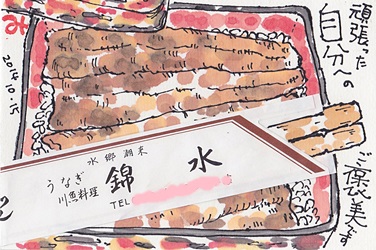 頑張った
自分への
ご褒美です
2014.10.15
み
水郷潮来
うなぎ
川魚料理
錦水
TEL